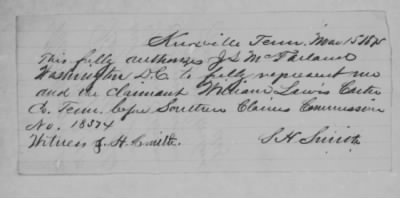 Knoxville Tenn. Mar 15 1875
This fully authorizes J S McFarland
Washington D.C. to fully represent me
and the claimant William Lewis Carter
Co. Tenn. before Southern Claims Commission
No. 18374
Witness J. H. Smith. S H Smith